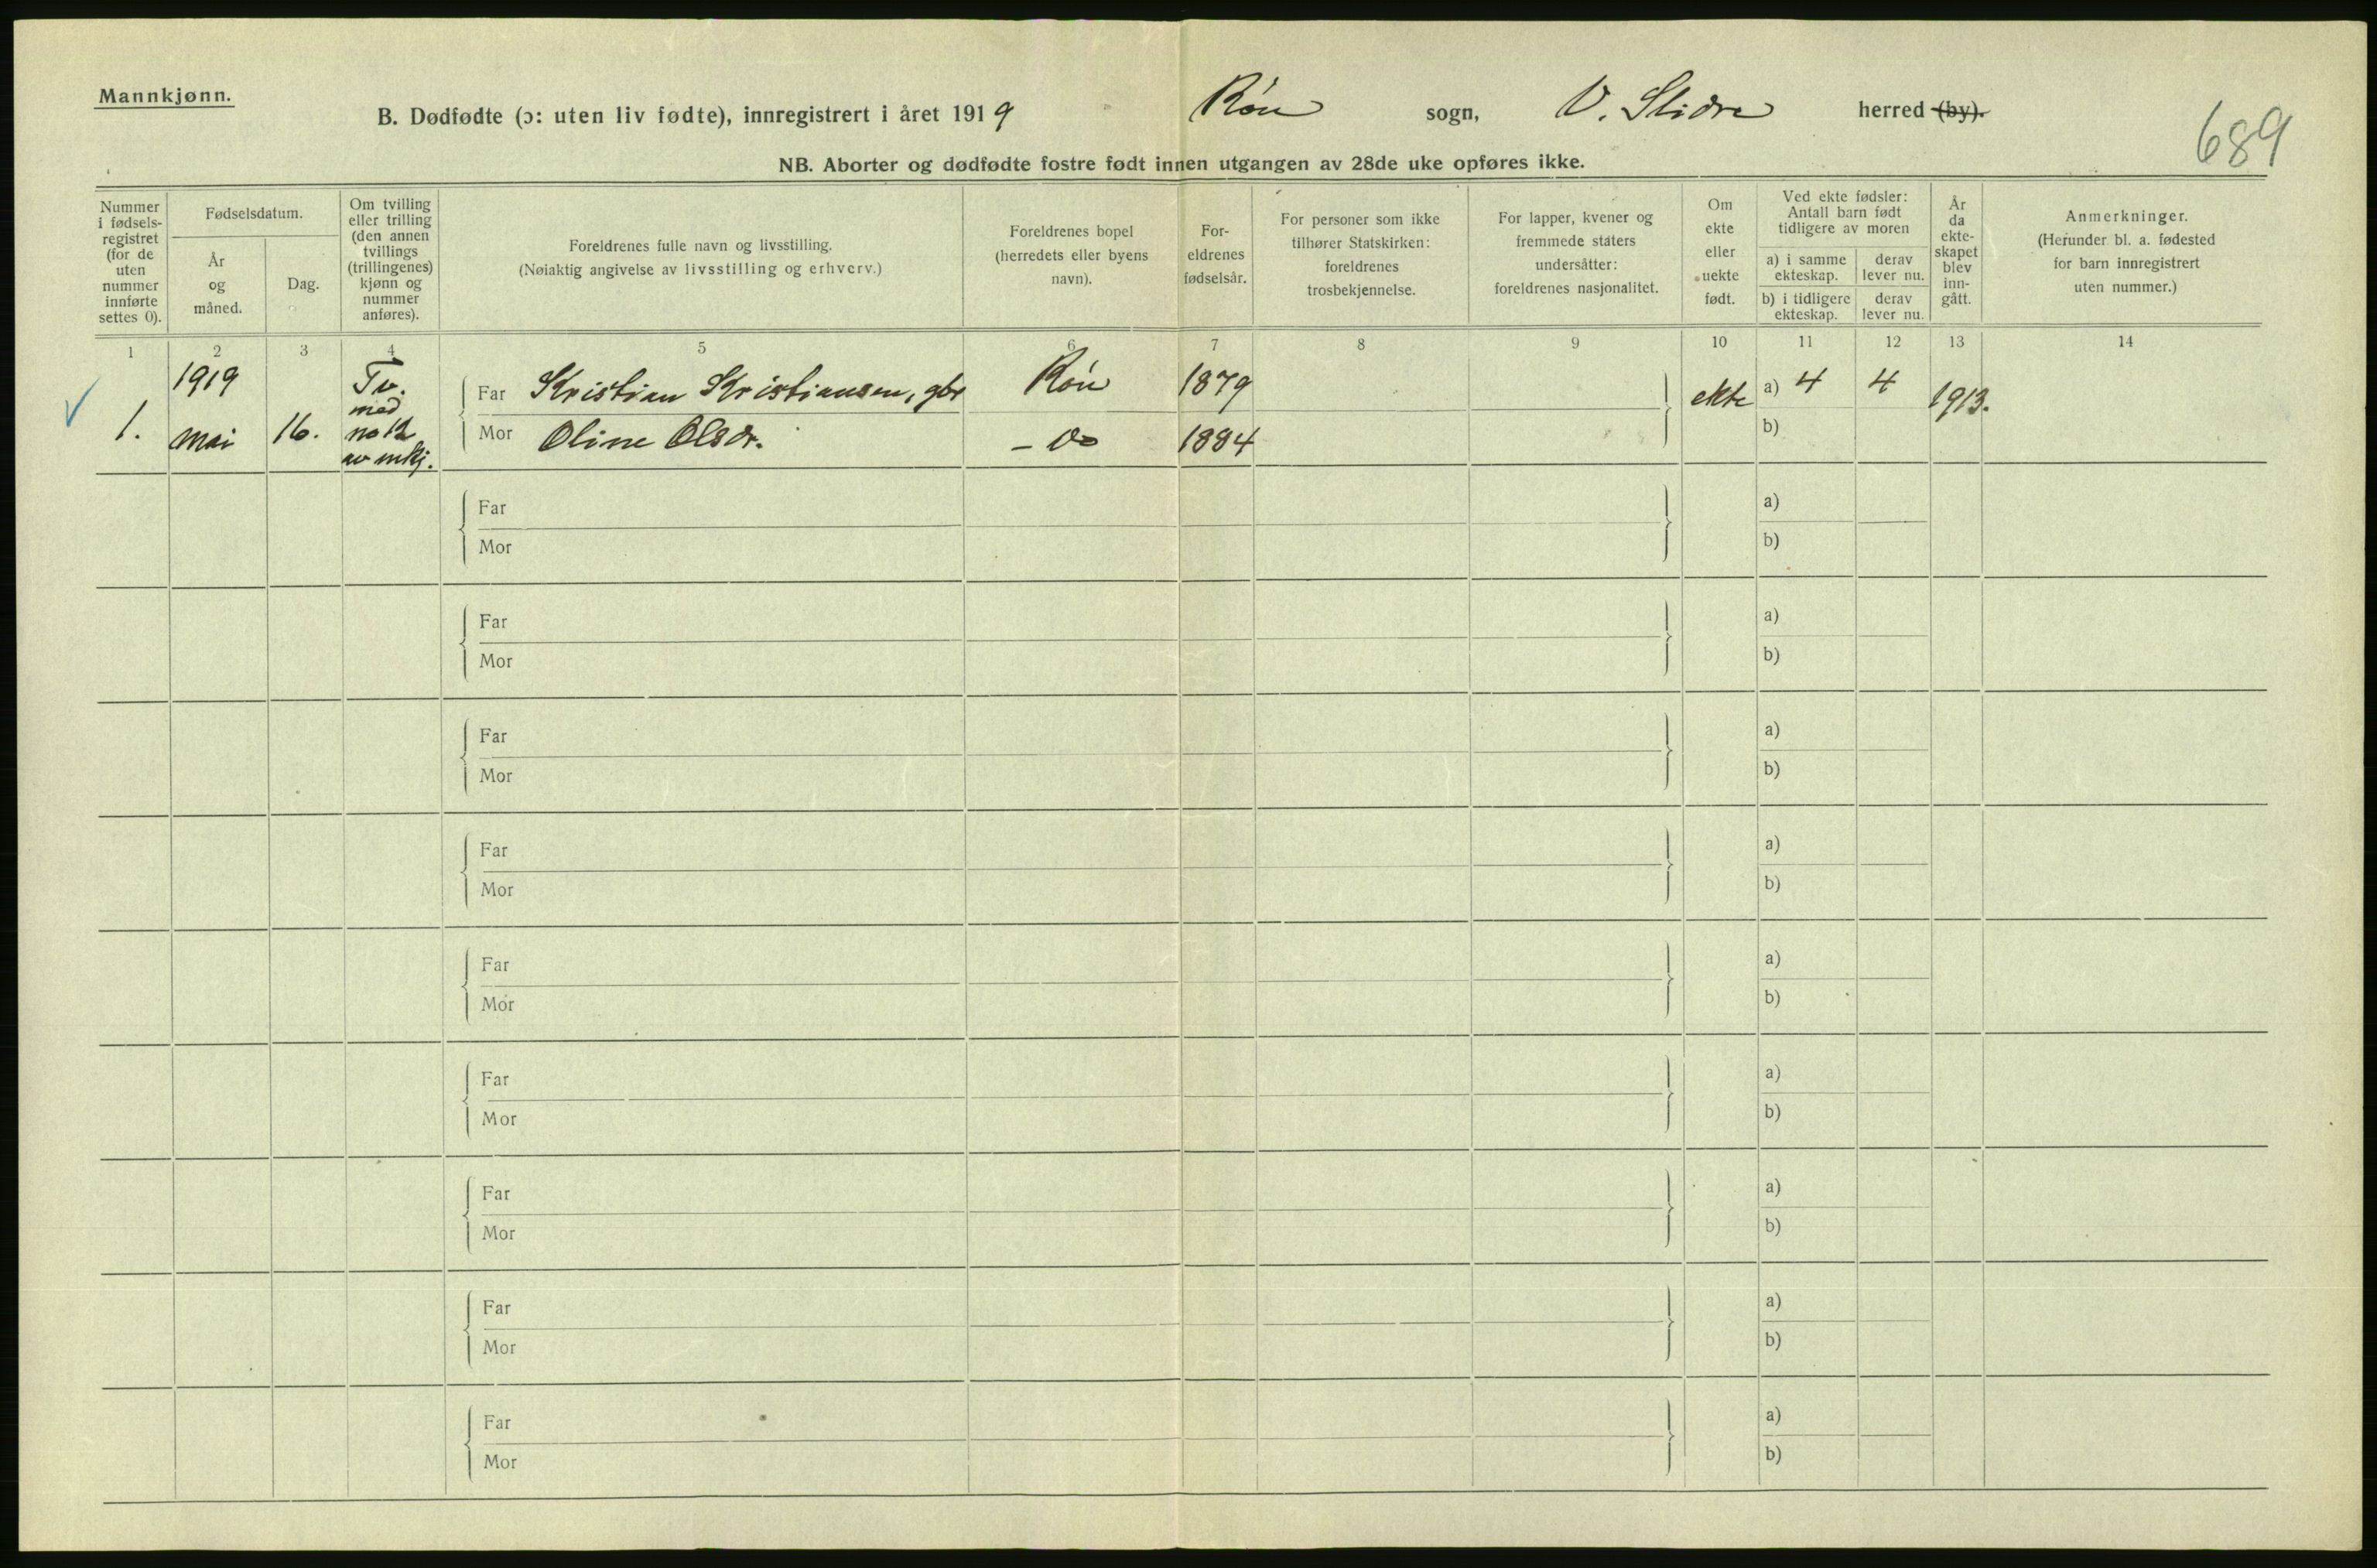 Mannkjønn.
B. Dødfødte (ɔ: uten liv fødte), innregistrert i året 1919 Røn sogn, V. Slidre herred (by).
689
NB. Aborter og dødfødte fostre født innen utgangen av 28de uke opføres ikke.
Nummer
i fødsels-
registret
(for de
uten
nummer
innførte
settes 0).
Fødselsdatum.
År
og
måned.
Dag.
Om tvilling
eller trilling
(den annen
tvillings
(trillingenes)
kjønn og
nummer
anføres).
Foreldrenes fulle navn og livsstilling.
(Nøiaktig angivelse av livsstilling og erhverv.)
Foreldrenes bopel
(herredets eller byens
navn).
For-
eldrenes
fødselsår.
For personer som ikke
tilhører Statskirken:
foreldrenes
trosbekjennelse.
For lapper, kvener og
fremmede staters
undersåtter:
foreldrenes nasjonalitet.
Om
ekte
eller
uekte
født.
Ved ekte fødsler:
Antall barn født
tidligere av moren
a) i samme
ekteskap.
derav
lever nu.
b) i tidligere
ekteskap.
derav
lever nu.
År
da
ekte-
skapet
blev
inn-
gått.
Anmerkninger.
(Herunder bl. a. fødested
for barn innregistrert
uten nummer.)
1 2 3 4 5 6 7 8 9 10 11 12 13 14
1.
1919
mai
16.
Tv.
med
no 12
av mkj.
Far Kristian Kristiansen, gbr Røn 1879
Mor Oline Olsdr. – Do 1884
ekte
a) 4 4
b)
1913.
Far a)
Mor b)
Far a)
Mor b)
Far a)
Mor b)
Far a)
Mor b)
Far a)
Mor b)
Far a)
Mor b)
Far a)
Mor b)
Far a)
Mor b)
Far a)
Mor b)